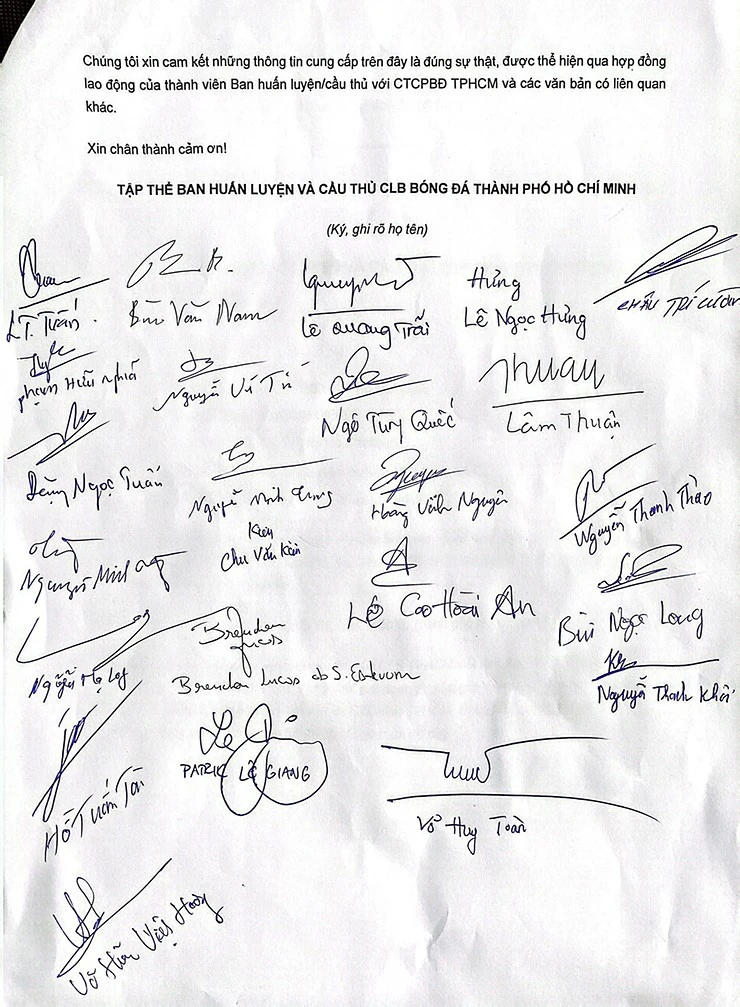 Chúng tôi xin cam kết những thông tin cung cấp trên đây là đúng sự thật, được thể hiện qua hợp đồng
lao động của thành viên Ban huấn luyện/cầu thủ với CTCPBĐ TPHCM và các văn bản có liên quan
khác.
Xin chân thành cảm ơn!
TẬP THỂ BAN HUẤN LUYỆN VÀ CẦU THỦ CLB BÓNG ĐÁ THÀNH PHỐ HỒ CHÍ MINH
(Ký, ghi rõ họ tên)
Hưng
L.T. Tuấn
Bùi Văn Nam
Lê Quang Trãi
Lê Ngọc Hưng
CHÂU TRÍ CƯỜNG
Phạm Hữu Nghĩa
Nguyễn Vi Tú
Ngô Tùng Quốc
Thuận
Lâm Thuận
Đặng Ngọc Tuấn
Nguyễn Minh Trung
Hoàng Vĩnh Nguyên
Nguyễn Thanh Thảo
Chu Văn Kiên
Nguyễn Minh
Lê Cao Hoài An
Bùi Ngọc Long
Brendon
Lucas
Nguyễn Hạ Long
Brendon Lucas do S. Estevam
Nguyễn Thanh Khôi
PATRIK LÊ GIANG
Hồ Tuấn Tài
Võ Huy Toàn
Võ Hữu Việt Hoàng